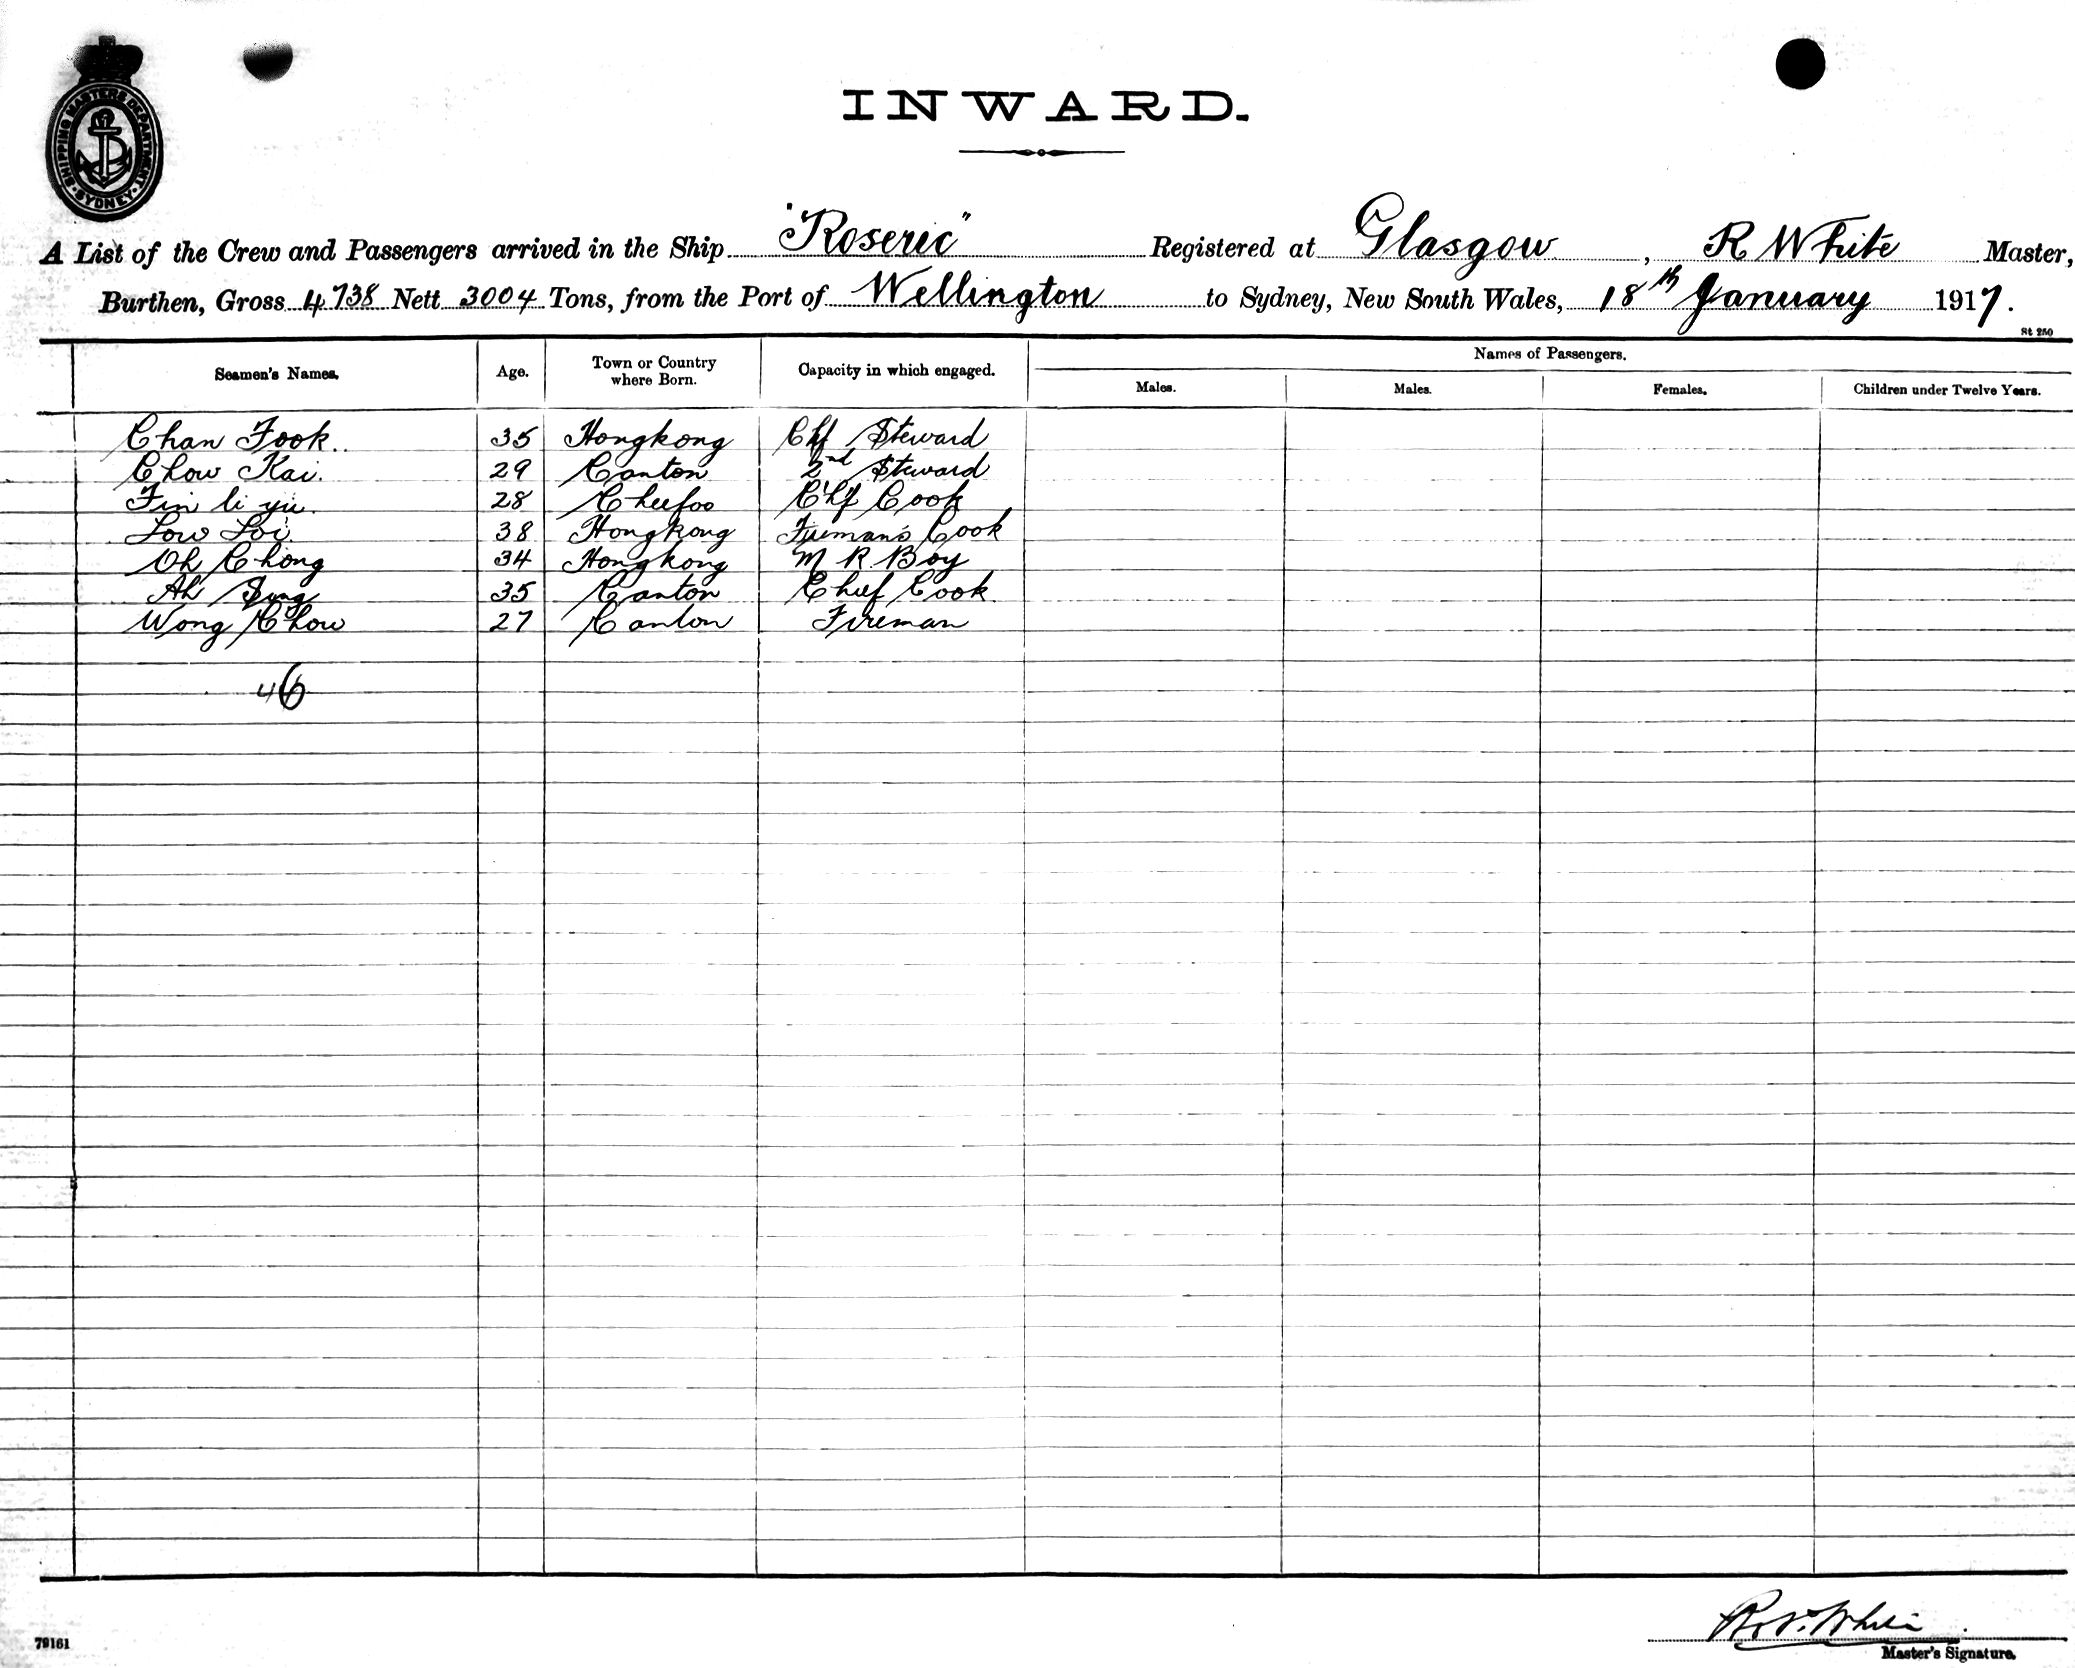 SHIPPING MASTERS DEPARTMENT
SYDNEY
INWARD.
A List of the Crew and Passengers arrived in the Ship "Roseric" Registered at Glasgow, R White Master,
Burthen, Gross 4738 Nett 3004 Tons, from the Port of Wellington to Sydney, New South Wales, 18th January 1917.
St 250
Names of Passengers.
Seamen's Names. Age. Town or Country where Born. Capacity in which engaged. Males. Males. Females. Children under Twelve Years.
Chan Fook.. 35 Hongkong Chf Steward
Chow Kai. 29 Canton 2nd Steward
Fin li yu. 28 Cheefoo Chf Cook
Low Loi. 38 Hongkong Fireman's Cook
Oh Chong 34 Hongkong M R Boy
Ah Sung 35 Canton Chief Cook.
Wong Chow 27 Canton Fireman
46
79161
Master's Signature.